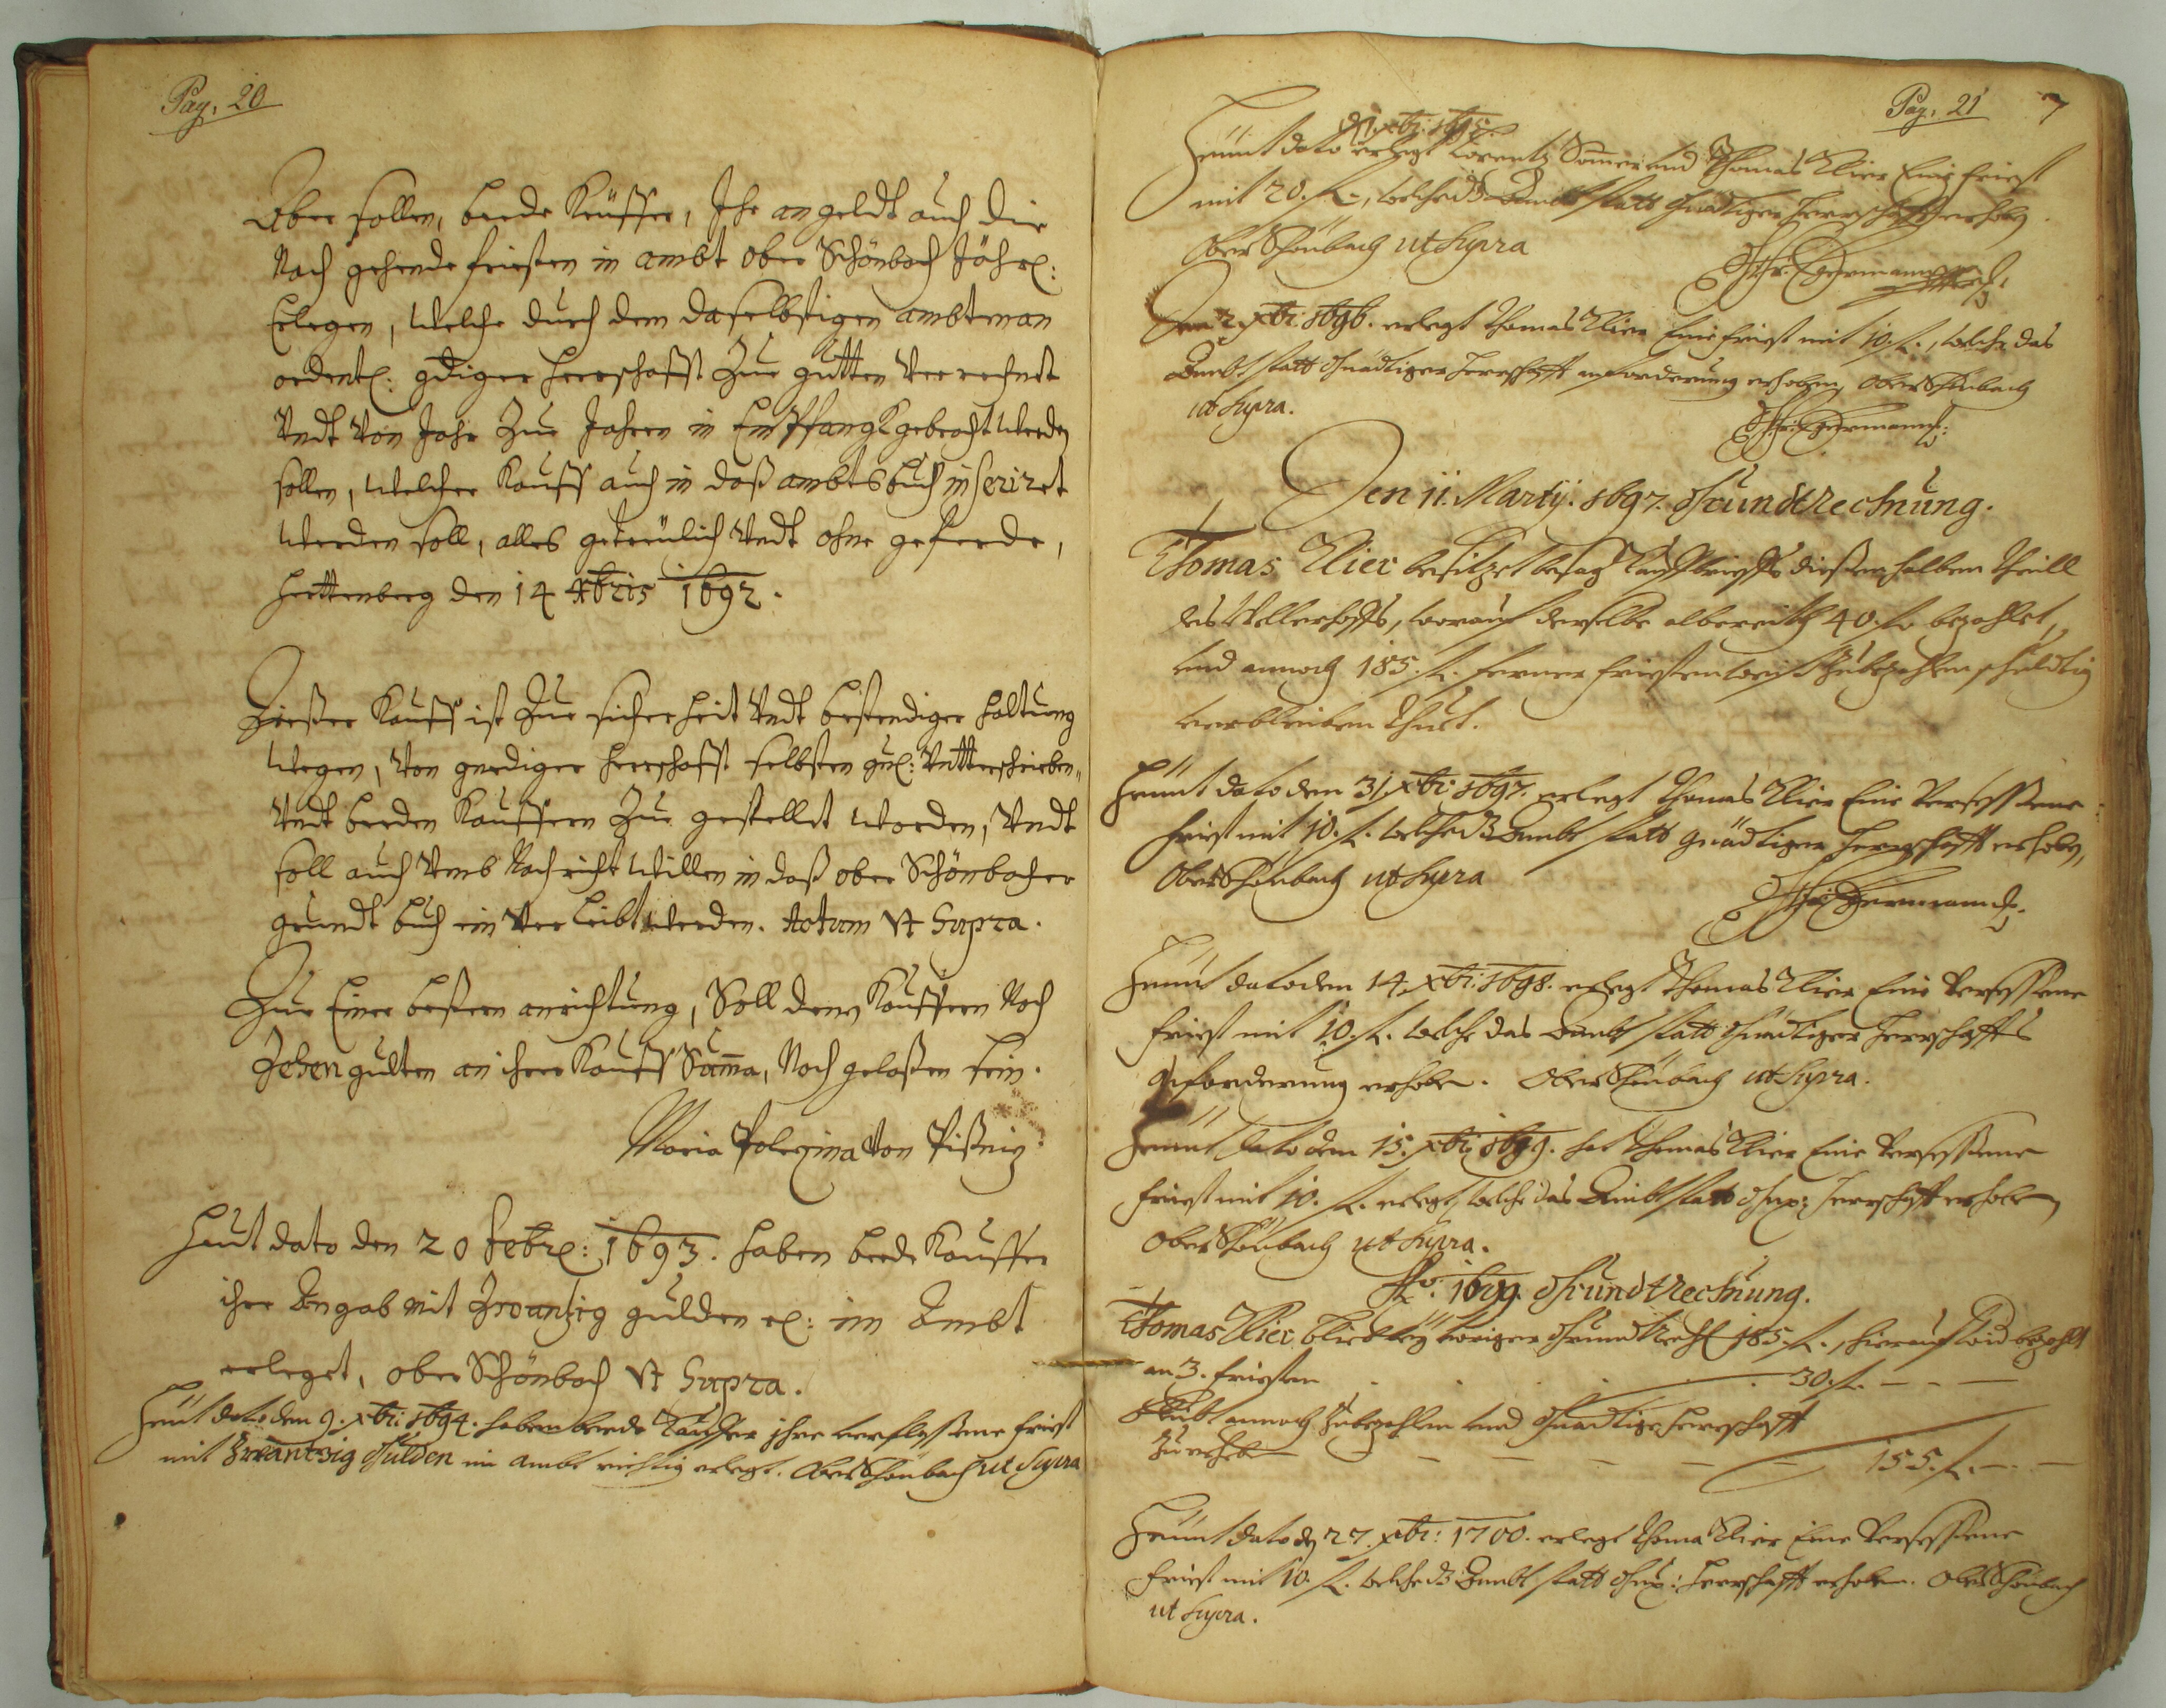 Pag. 20
Aber sollen, beede Keüffer, Ihr angeldt auch die
Nach gehende friesten in ambt ober Schönbach Jährl:
Erlegen, welche durch dem daselbstigen ambtman
ordentl: gdiger herrschafft zue gutten verrechnet
Undt von Jahr zue Jahren in Empfang gebracht werden
sollen, welcher Kauff auch in daß ambtsbuch inseriret
werden soll, alles getreülich Undt ohne geferde,
herttenberg den 14 Xbris 1692.
Dießer Kauff ist zue sicherheit Undt bestendiger haltung
wegen, von gnediger herrschafft selbsten Untterschrieben
Undt beeden Kauffern zue gestellet worden, Undt
soll auch Umb Nachricht willen in daß ober Schönbacher
grundt buch ein verleibt werden. Actum Ut Supra.
Zue Einer beßern anrichtung, Soll denen Kauffern Noch
Zehen gulten an ihrer Kauff Suma, Nachgelaßen sein.
Maria Polexina von
Heut dato den 20 Febr: 1693. haben beede Kauffer
ihre Angab mit Zwantzig gulden im Ambt
erleget, ober Schönbach Ut Supra.
Heüt dato den 9. xbr: 1694. haben beede Käuffer ihre verfloßene friest
mit Zwantzig Gulden im ambt richtig erlegt. Ober Schönbach ut Supra
Pag. 21 7
xbr: 1695.
Heünt dato erlegt Lorentz Sommer und Thomas Klier Eine friest
mit 20. f., welche ds Ambt statt Gnädtiger Herrschafft erhoben.
Ober Schönbach ut Supra
Den 2 xbr: 1696. erlegt Thomas Klier Eine friest mit 10. f., welche das
Ambt statt Gnädtiger Herrschafft anforderung erhoben, Ober Schönbach
ut Supra.
Den 11. Martij. 1697. Grundtrechnung.
Thomas Klier besitzet besag Kauffbrieffs dießen halben theill
des Wellerhoffs, worauf derselbe albereith 40. f. bezahlet,
und annoch 185. f. ferner friestenweiß zubezahlen schuldtig
verbleiben thut.
Heünt dato den 31. xbr: 1697. erlegt Thomas Klier Eine Verseßene
friest mit 10. f. welche ds Ambt statt Gnädtiger Herrschafft erhoben,
Ober Schönbach ut Supra
Heünt dato den 14. xbr: 1698. erlegt Thomas Klier Eine Verseßene
friest mit 10. f. welche das Ambt statt Gnädtiger Herrschaffts
Anforderung erhoben. Ober Schönbach ut Supra.
Heünt dato den 15. xbr: 1699. hat Thomas Klier Eine Verseßene
friest mit 10. f. erlegt, welche das Ambt statt Gnd: Herrschafft erhoben
Ober Schönbach ut Supra.
Ao: 1699. Grundtrechnung.
Thomas Klier bliebe bey voriger Grundtrechn 185. f., hierauf wird bezahlt
an 3. friesten . . . . 30. f. — — —
Bleibt annoch zubezahlen und Gnädtige Herrschafft
zuerheben — — — — 155. f. — —
Heünt dato den 27. xbr: 1700. erlegt Thoma Klier Eine Verseßene
friest mit 10. f. welche ds Ambt statt Gnd: Herrschafft erhoben. Ober Schönbach
ut Supra.